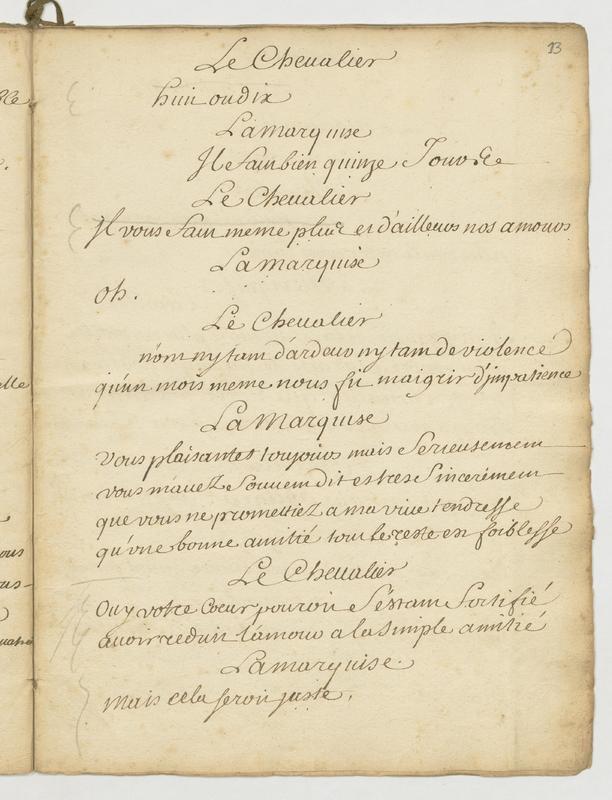 13
Le Cheualier
huit ou dix
La marquise
Il faut bien quinze Jours
Le Cheualier
Il vous faut meme plus et d'ailleurs nos amours
La marquise
Oh.
Le Cheualier
n'ont ny tant d'ardeur ny tant de violence
qu'un mois meme nous fit maigrir d'impatience
La Marquise
vous plaisantes toujours mais serieusement
vous m'auez souuent dit et tres sincerement
que vous ne promettiez a ma viue tendresse
qu'vne bonne amitié tout le reste en foiblesse
Le Cheualier
Ouy votre Cœur pouroit s'estant fortifié
auoir reduit l'amour a la simple amitié
La marquise.
Mais cela seroit juste.
elle
ous